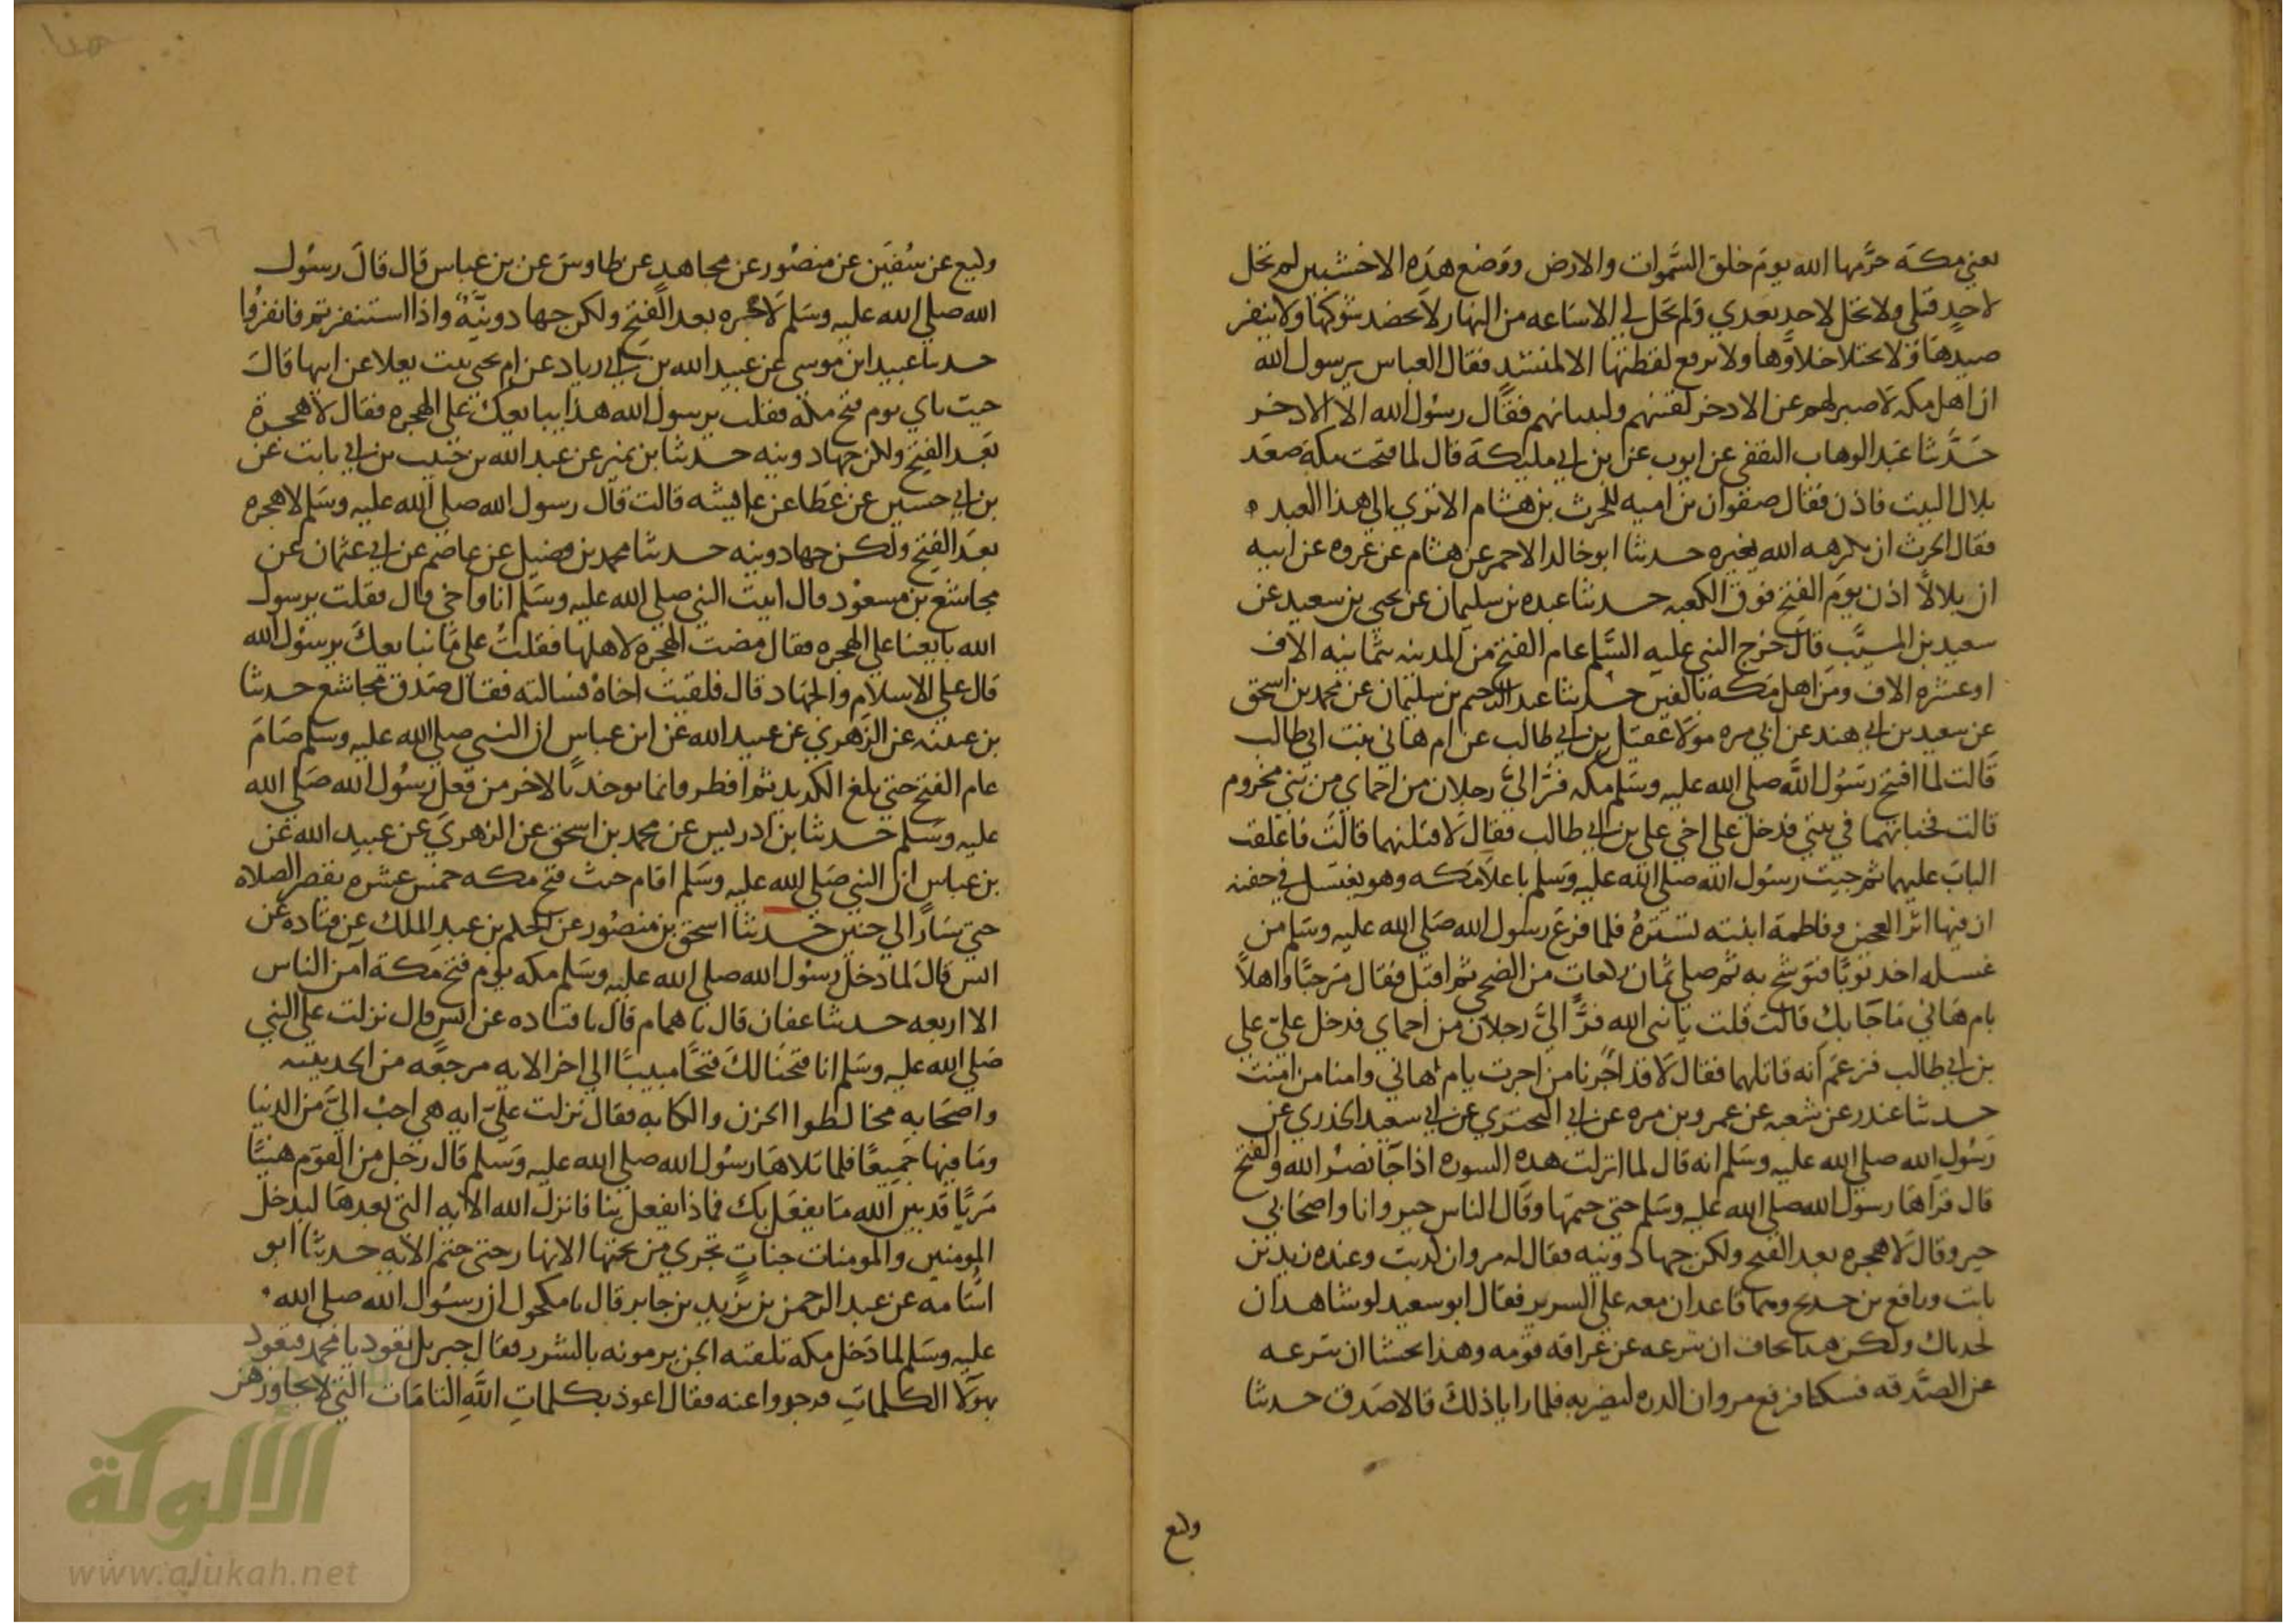 يعني مكة حرَّمها الله يومَ خلق السَّموات والارض ووَضع هذه الاخشبين لم تحل
لاحدٍ قبلي ولا تحل لاحدٍ بَعدي وَلم تحَل لي الا سَاعه من النهار لا يحضد شوكها ولا ينفر
صيدهَا وَلا يختلا خلاؤُها ولا ترفع لقطتها الا لمنشد فقال العباس يرسول الله
ان اهل مكه لا صبر لهم عن الادخر لقينهم ولبنيانهم فقال رسُول الله الا الادخر
حَدَّثنا عَبد الوهاب الثقفي عن ايوب عن ابن ابي مليكة قال لما فتحت مكة صعَد
بلال البيت فاذن فقال صفوان بن اميه للحرث بن هشام الا تري الي هذا العبد
فقال الحرث ان يكرهه الله يغيره حدثنا ابو خالد الاحمر عن هشام عن عروه عن ابيه
ان بلالاً اذن يومَ الفتح فوق الكعبه حدثنا عبده بن سليمان عن يحيي بن سعيد عن
سعيد بن المسيَّب قال خرج النبي عليه السَّلم عام الفتح من المدينه بثمانيه الاف
او عشره الاف ومن اهل مَكه بالفين حدثنا عبد الرحيم بن سليمان عن محمد بن اسحق
عن سعيد بن ابي هند عن ابي مره مولا عقيل بن ابي طالب عن ام هاني بنت ابي طالب
قَالت لما افتتح رسُول اللَّه صلي الله عليه وسَلم مكه فرَّ اليَّ رجلان من احماي من بَني مخزوم
قالت فخباتهما في بيتي فدخل علي اخي علي بن ابي طالب فقال لاقتلنهما قالَت فاغلقت
البابَ عليهما ثم جيت رسُول الله صلي الله عليه وسَلم باعلا مَكه وهو يغتسل في جفنه
ان فيها اثر العجين وفاطمة ابنته تستُرهُ فلما فرَغ رسول الله صَلي الله عليه وسَلم من
غسله اخذ ثوبًا فتوَشح به ثم صلي ثمان ركعات من الضحي ثم اقبل فقال مَرحبًا واهلاً
بام هَاني مَا جَا بكِ قالت قلت يا نبي الله فرَّ اليَّ رجلان من احماي فدخل عليّ علي
بن ابي طالب فزعَم انه قاتلهما فقال لا قد اجرنا من اجرت يام هاني وامنا من امنت
حدثنا غندر عن شعبه عن عمرو بن مره عن ابي البحتري عن ابي سعيد الخدري عن
رَسُول الله صلي الله عليه وسَلم انه قال لما انزلت هذه السوره اذا جَا نصْر الله والفتح
قال قراهَا رسول الله صلي الله عليه وسَلم حتي ختمها وقال الناس حيز وانا واصحَابي
حيز وقال لا هجره بعد الفتح ولكن جهاد ونيه فقال له مروان كذبت وعنده زيد بن
ثابت ورافع بن خديج وهما قاعدان معه علي السرير فقال ابو سعيد لو شا هذان
لحدثاك ولكن هذا يخاف ان تنزعه عن عرافة قومه وهذا يخشا ان تنزعه
عن الصَّدقه فسكتا فرفع مروان الدره ليضربه فلما رايا ذلك قالا صَدق حدثنا
وكيع
١٠٦
وكيع عن سُفين عن منصُور عن مجاهد عن طاوسَ عن بن عباس قال قالَ رسُول
الله صلي الله عليه وسَلم لا هجره بعد الفتح ولكن جهاد ونيَّةٌ واذا استنفرتم فانفرُوا
حدثنا عبيد ابن موسي عن عبيد الله بن ابي زياد عن ام يحيي بنت يعلا عن ابيها قالَ
جيت بابي يوم فتح مكه فقلت يرسول الله هذا يبايعك علي الهجره فقال لا هجرة
بَعد الفتح ولكن جهاد ونيه حدثنا بن نمير عن عبد الله بن حبيب بن ابي ثابت عن
بن ابي حسين عن عَطا عن عايشه قالت قال رسول الله صلي الله عليه وسَلم لا هجره
بعدَ الفتح ولكن جهاد ونيه حدثنا محمد بن فضيل عن عاصم عن ابي عثمان عن
مجاشع بن مسعوْد قال اتيت النبي صلي الله عليه وسَلم انا واخي قال فقلت يرسول
الله بايعنا علي الهجره فقال مضت الهجره لاهلها فقلت علي مَا نبايعك يرسُول الله
قال علي الاسلام والجهاد قال فلقيت اخاهُ فسالته فقال صَدق مجاشع حدثنا
بن عيينه عن الزهري عن عبيد الله عن ابن عباس ان النبي صلي الله عليه وسلم صَامَ
عام الفتح حتي بلغ الكديد ثم افطر وانما يوخد بالاخر من فعل رسُول الله صَلي الله
عليه وسَلم حدثنا بن ادريس عن محمد بن اسحق عن الزهري عن عبيد الله عن
بن عباس ان النبي صَلي الله عليه وسَلم اقام حيث فتح مكه خمس عشره يقصر الصلاه
حتي سَارَ الي حنين حدثنا اسحق بن منصُور عن الحكم بن عبد الملك عن قتاده عن
انس قالَ لما دخل رسُول الله صلي الله عليه وسَلم مكه يوم فتح مكة امن الناس
الا اربعه حدثنا عفان قال نا همام قال نا قتاده عن انس قال نزلت علي النبي
صَلي الله عليه وسَلم انا فتحنا لكَ فتحًا مبينًا الي اخر الايه مرجعَه من الحديبيه
واصحَابه مخالطوا الحزن والكابه فقال نزلت عليّ ايه هي احبُ اليَّ من الدنيا
ومَا فيها جَميعًا فلما تلاهَا رسُول الله صلي الله عليه وَسَلم قال رجل من القوم هنيًا
مَريًا قد بين الله مَا يفعَل بك فماذا يفعل بنا فانزل الله الايه التي بعدهَا ليدخل
المومنين والمومنات جنات تجري من تحتها الانهار حتي ختم الايه حدثنا ابو
اسَامه عن عبد الرحمن بن يزيد بن جابر قال نا مكحول ان رسُول الله صلي الله
عليه وسَلم لما دَخل مكه تلقته الجن يرمونه بالشرر فقال جبريل تعوذ يا محمد فتعوذ
بهولا الكلماتِ فدحروا عنه فقال اعوذ بكلماتِ اللَّهِ التامَات التي لا يجاوزهن
الألوكة
www.alukah.net